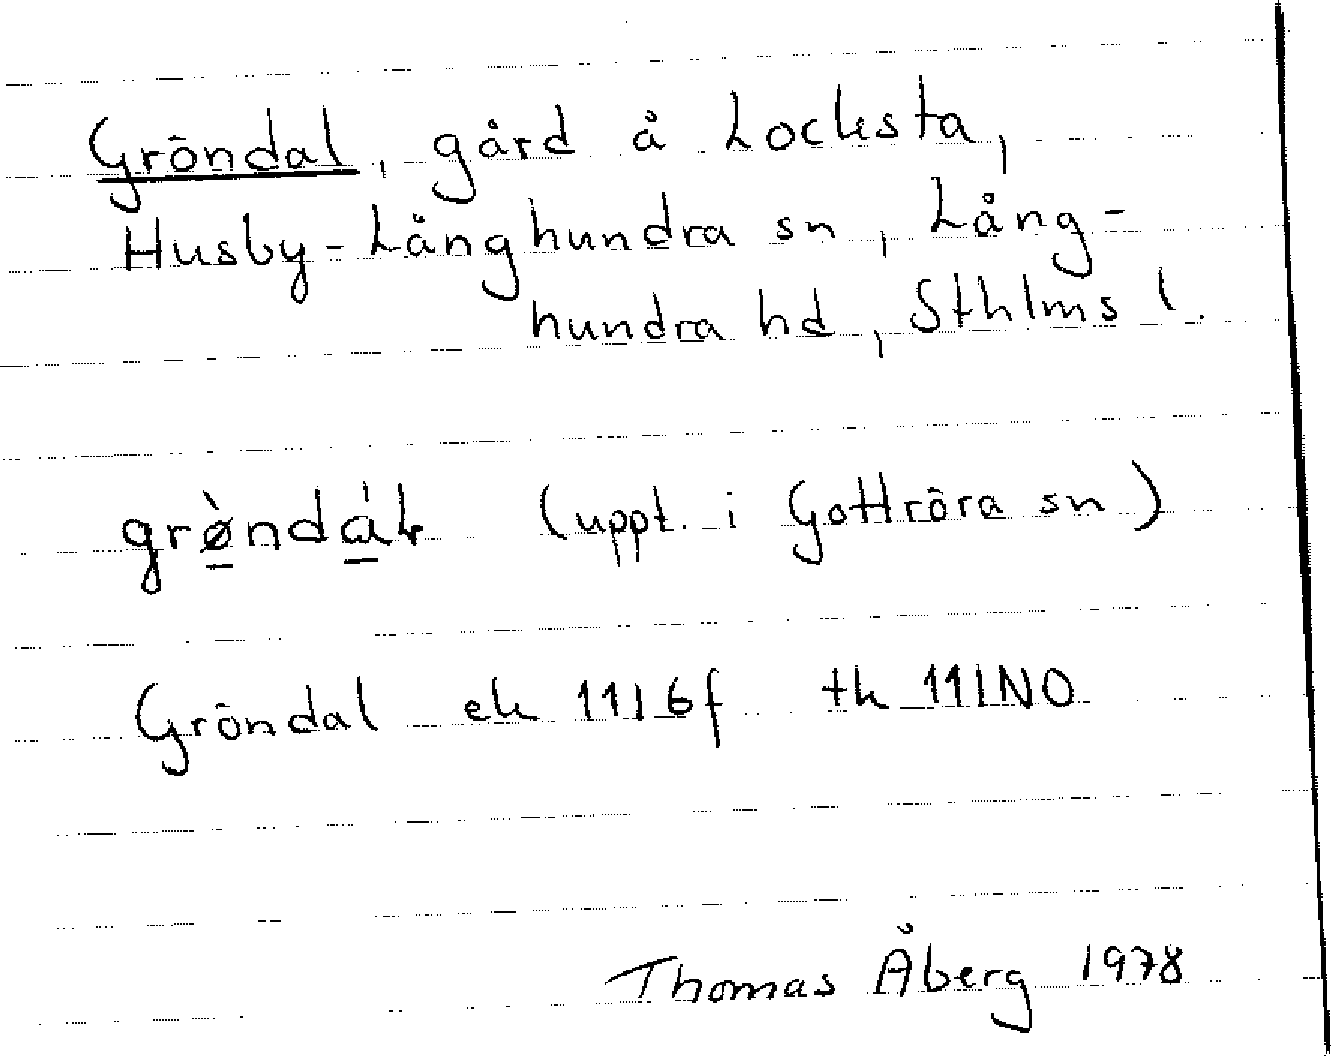 Gröndal, gård å Locksta,
Husby-Långhundra sn, Lång-
hundra hd, Sthlms l.
grø̀ndáɫ (uppt. i Gottröra sn)
Gröndal ek 11I6f tk 11INO
Thomas Åberg 1978